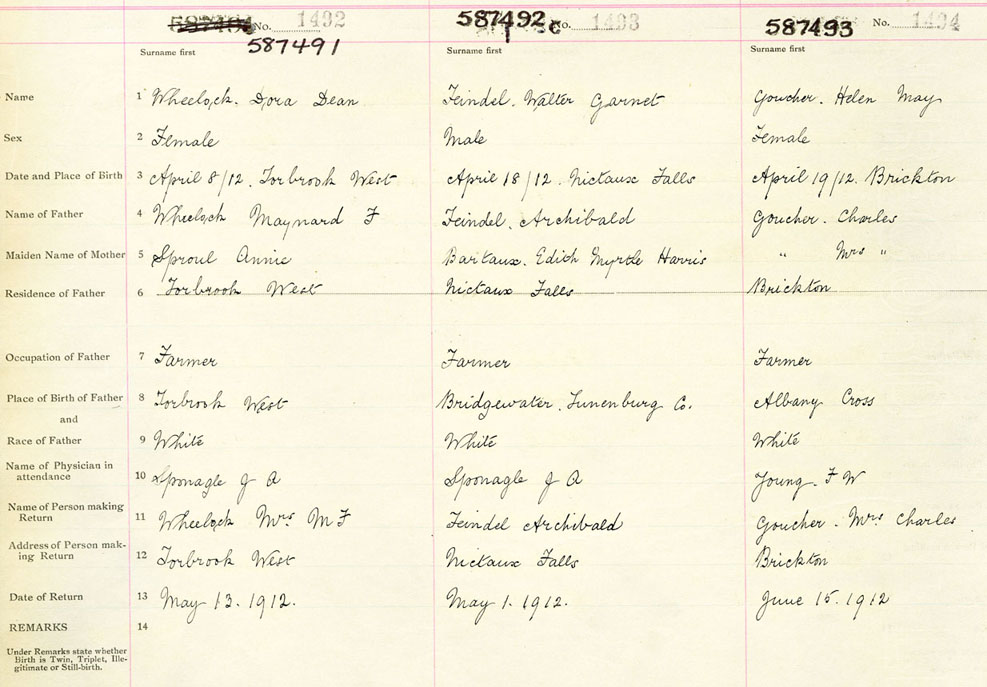 No. 1492 587492 No. 1493 587493 No. 1494
587491
Surname first Surname first Surname first
Name 1 Wheelock. Dora Dean Feindel. Walter Garnet Goucher. Helen May
Sex 2 Female Male Female
Date and Place of Birth 3 April 8/12. Torbrook West April 18/12. Nictaux Falls April 19/12. Brickton
Name of Father 4 Wheelock Maynard F Feindel. Archibald Goucher. Charles
Maiden Name of Mother 5 Sproul Annie Bartaux. Edith Myrtle Harris " Mrs "
Residence of Father 6 Torbrook West Nictaux Falls Brickton
Occupation of Father 7 Farmer Farmer Farmer
Place of Birth of Father 8 Torbrook West Bridgewater. Lunenburg Co. Albany Cross
and
Race of Father 9 White White White
Name of Physician in
attendance 10 Sponagle J A Sponagle J A Young. F W
Name of Person making
Return 11 Wheelock Mrs M F Feindel Archibald Goucher. Mrs Charles
Address of Person mak-
ing Return 12 Torbrook West Nictaux Falls Brickton
Date of Return 13 May 13. 1912. May 1. 1912. June 15. 1912
REMARKS 14
Under Remarks state whether
Birth is Twin, Triplet, Ille-
gitimate or Still-birth.